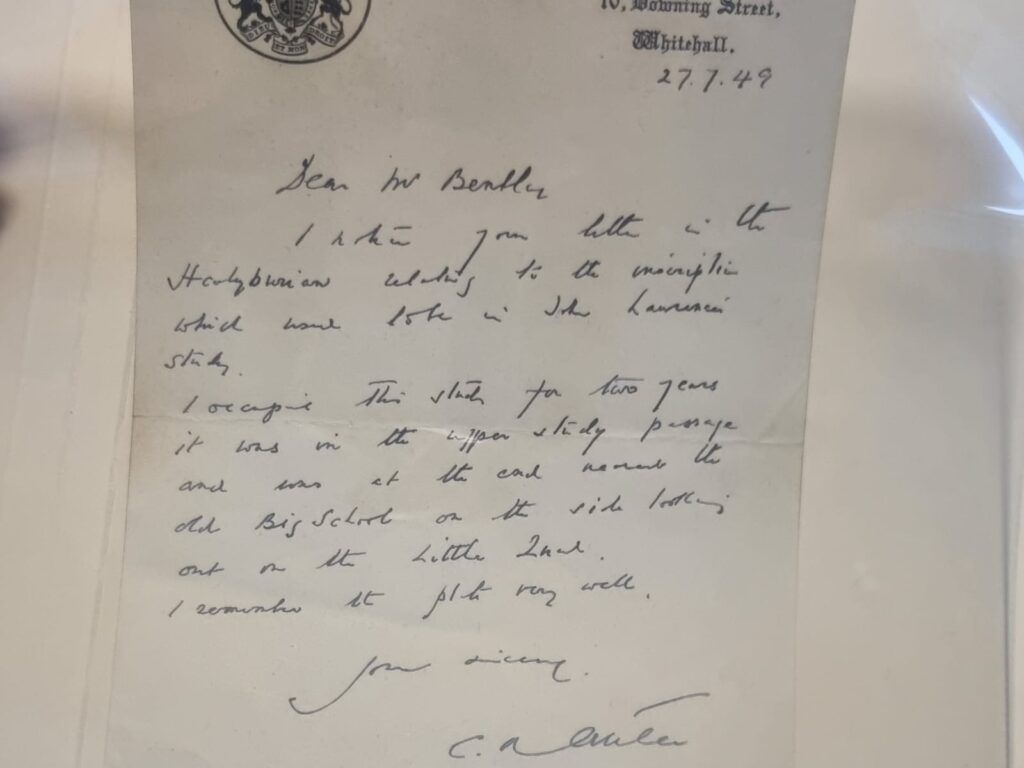 DIEU ET MON DROIT
10, Downing Street,
Whitehall.
27.7.49
Dear Mr Bentley
I notice your letter in the
Haileyburian relating to the inscription
which used to be in John Lawrence's
study.
I occupied this study for two years
it was in the upper study passage
and was at the end nearest the
old Big School on the side looking
out on the Little Quad.
I remember the plate very well.
Yours sincerely
C. R. Attlee